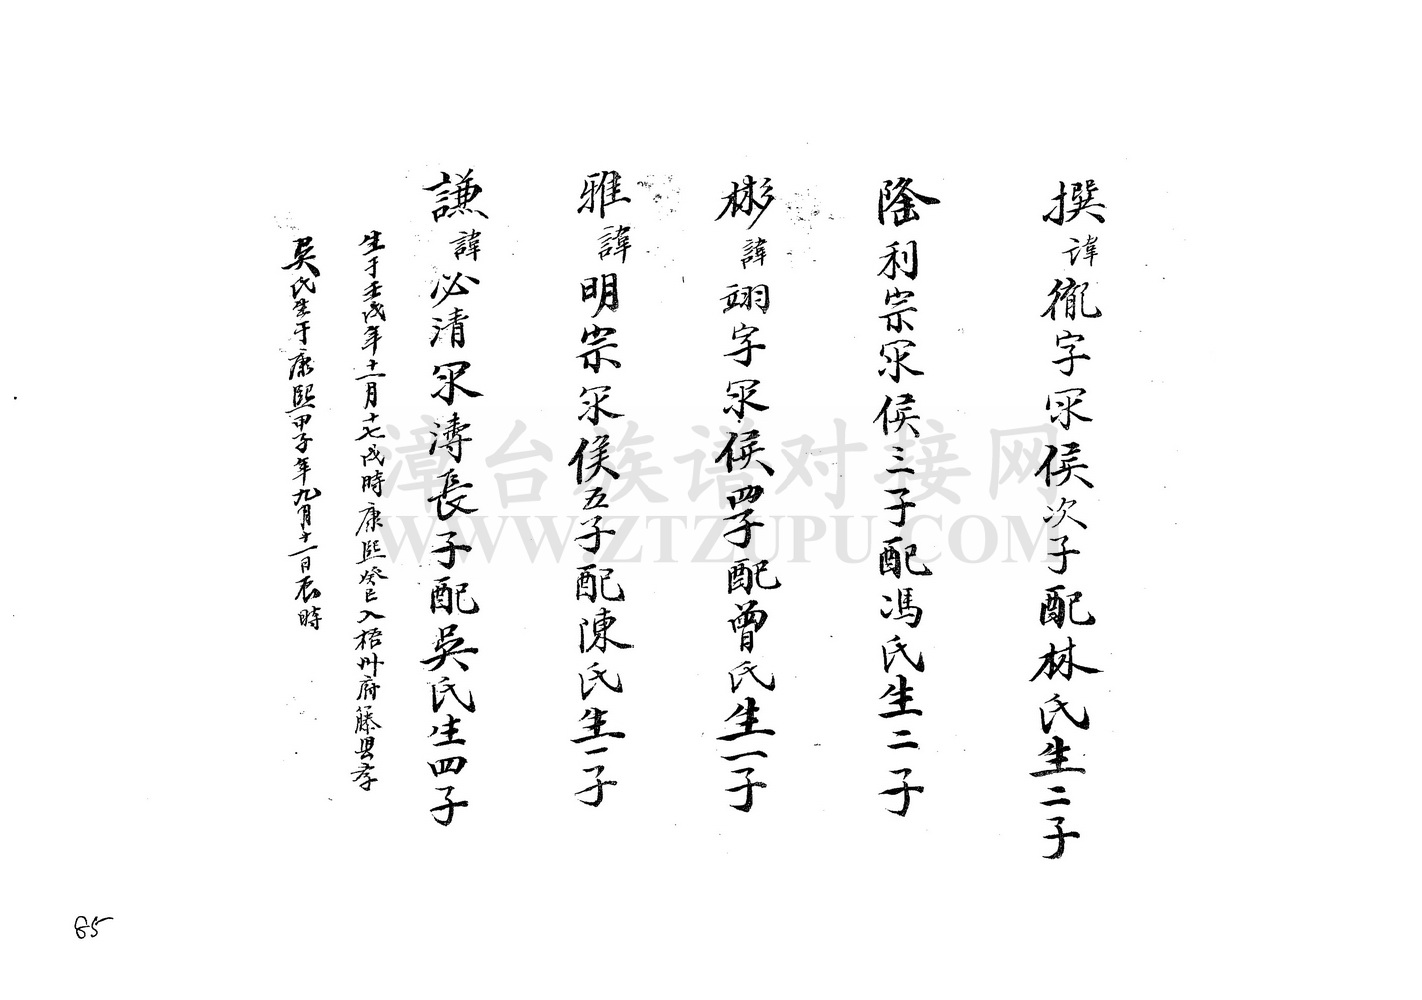 撰諱徿字眔侯次子配林氏生二子
隆利宗眔侯三子配馮氏生二子
彬諱翊字眔侯四子配曾氏生一子
雅諱明宗眔侯五子配陳氏生一子
謙諱必清眔溥長子配吳氏生四子
生于壬戌年十一月十七戌時康熙癸巳入梧州府籐县庠
吳氏生于康熙甲子年九月十一日辰時
漳台族谱对接网
WWW.ZTZUPU.COM
85